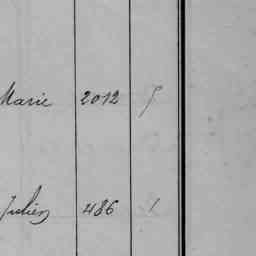 Marie 2012 5
Julien 486 1